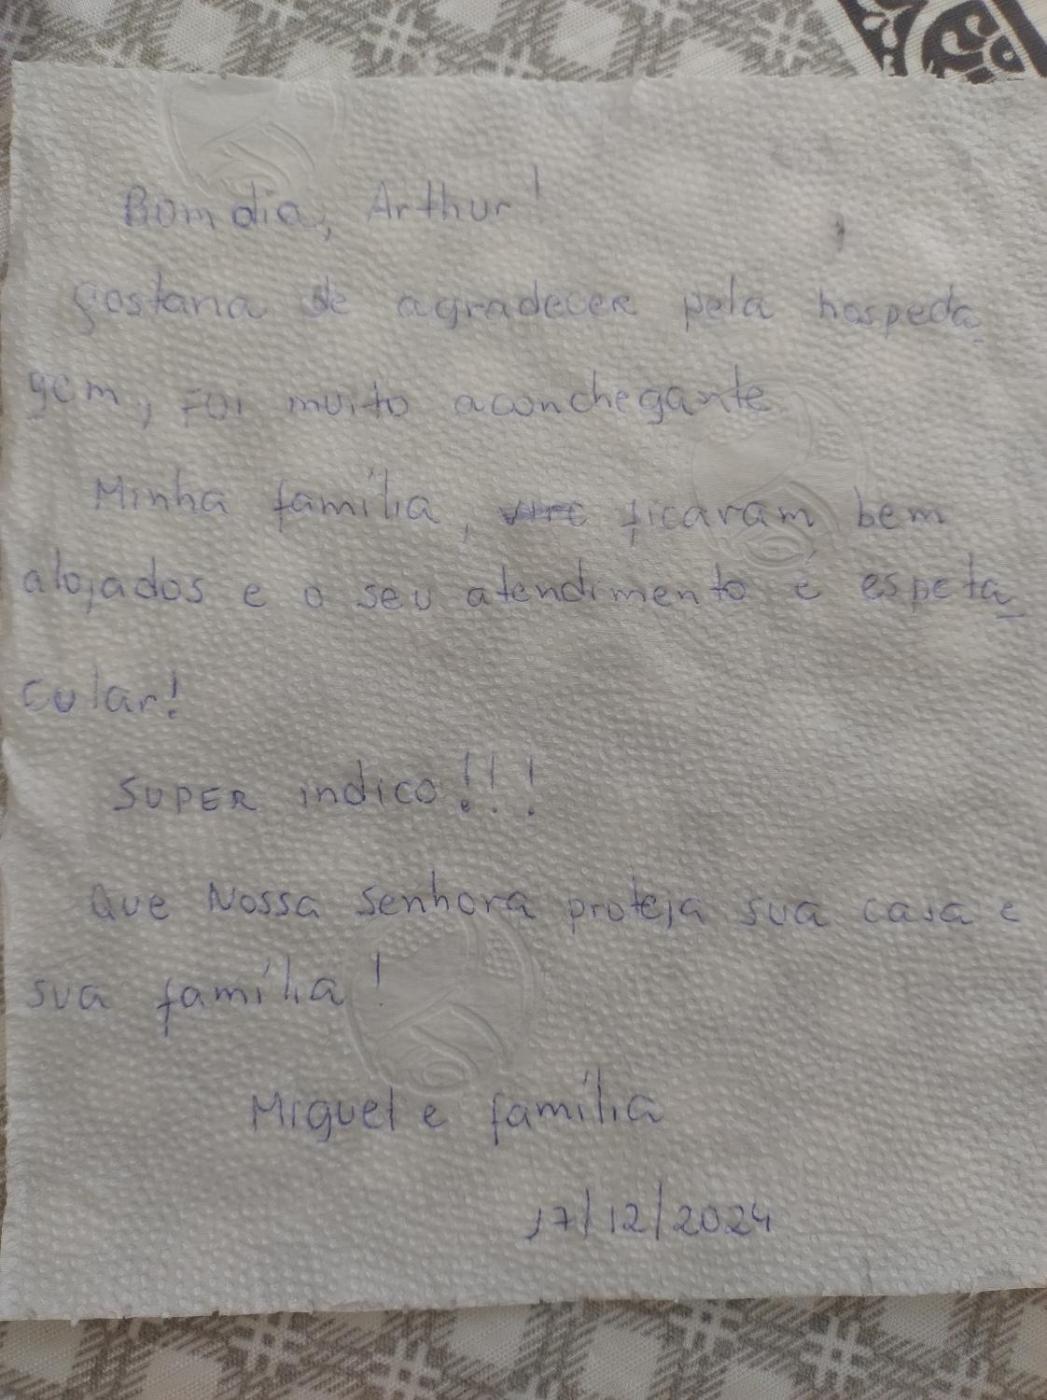 Bom dia, Arthur!
gostaria de agradecer pela hospeda_
gem, Foi muito aconchegante.
Minha família, ficaram bem
alojados e o seu atendimento é espeta_
cular!
SUPER indico!!!
Que Nossa Senhora proteja sua casa e
sua família!
Miguel e família
17/12/2024